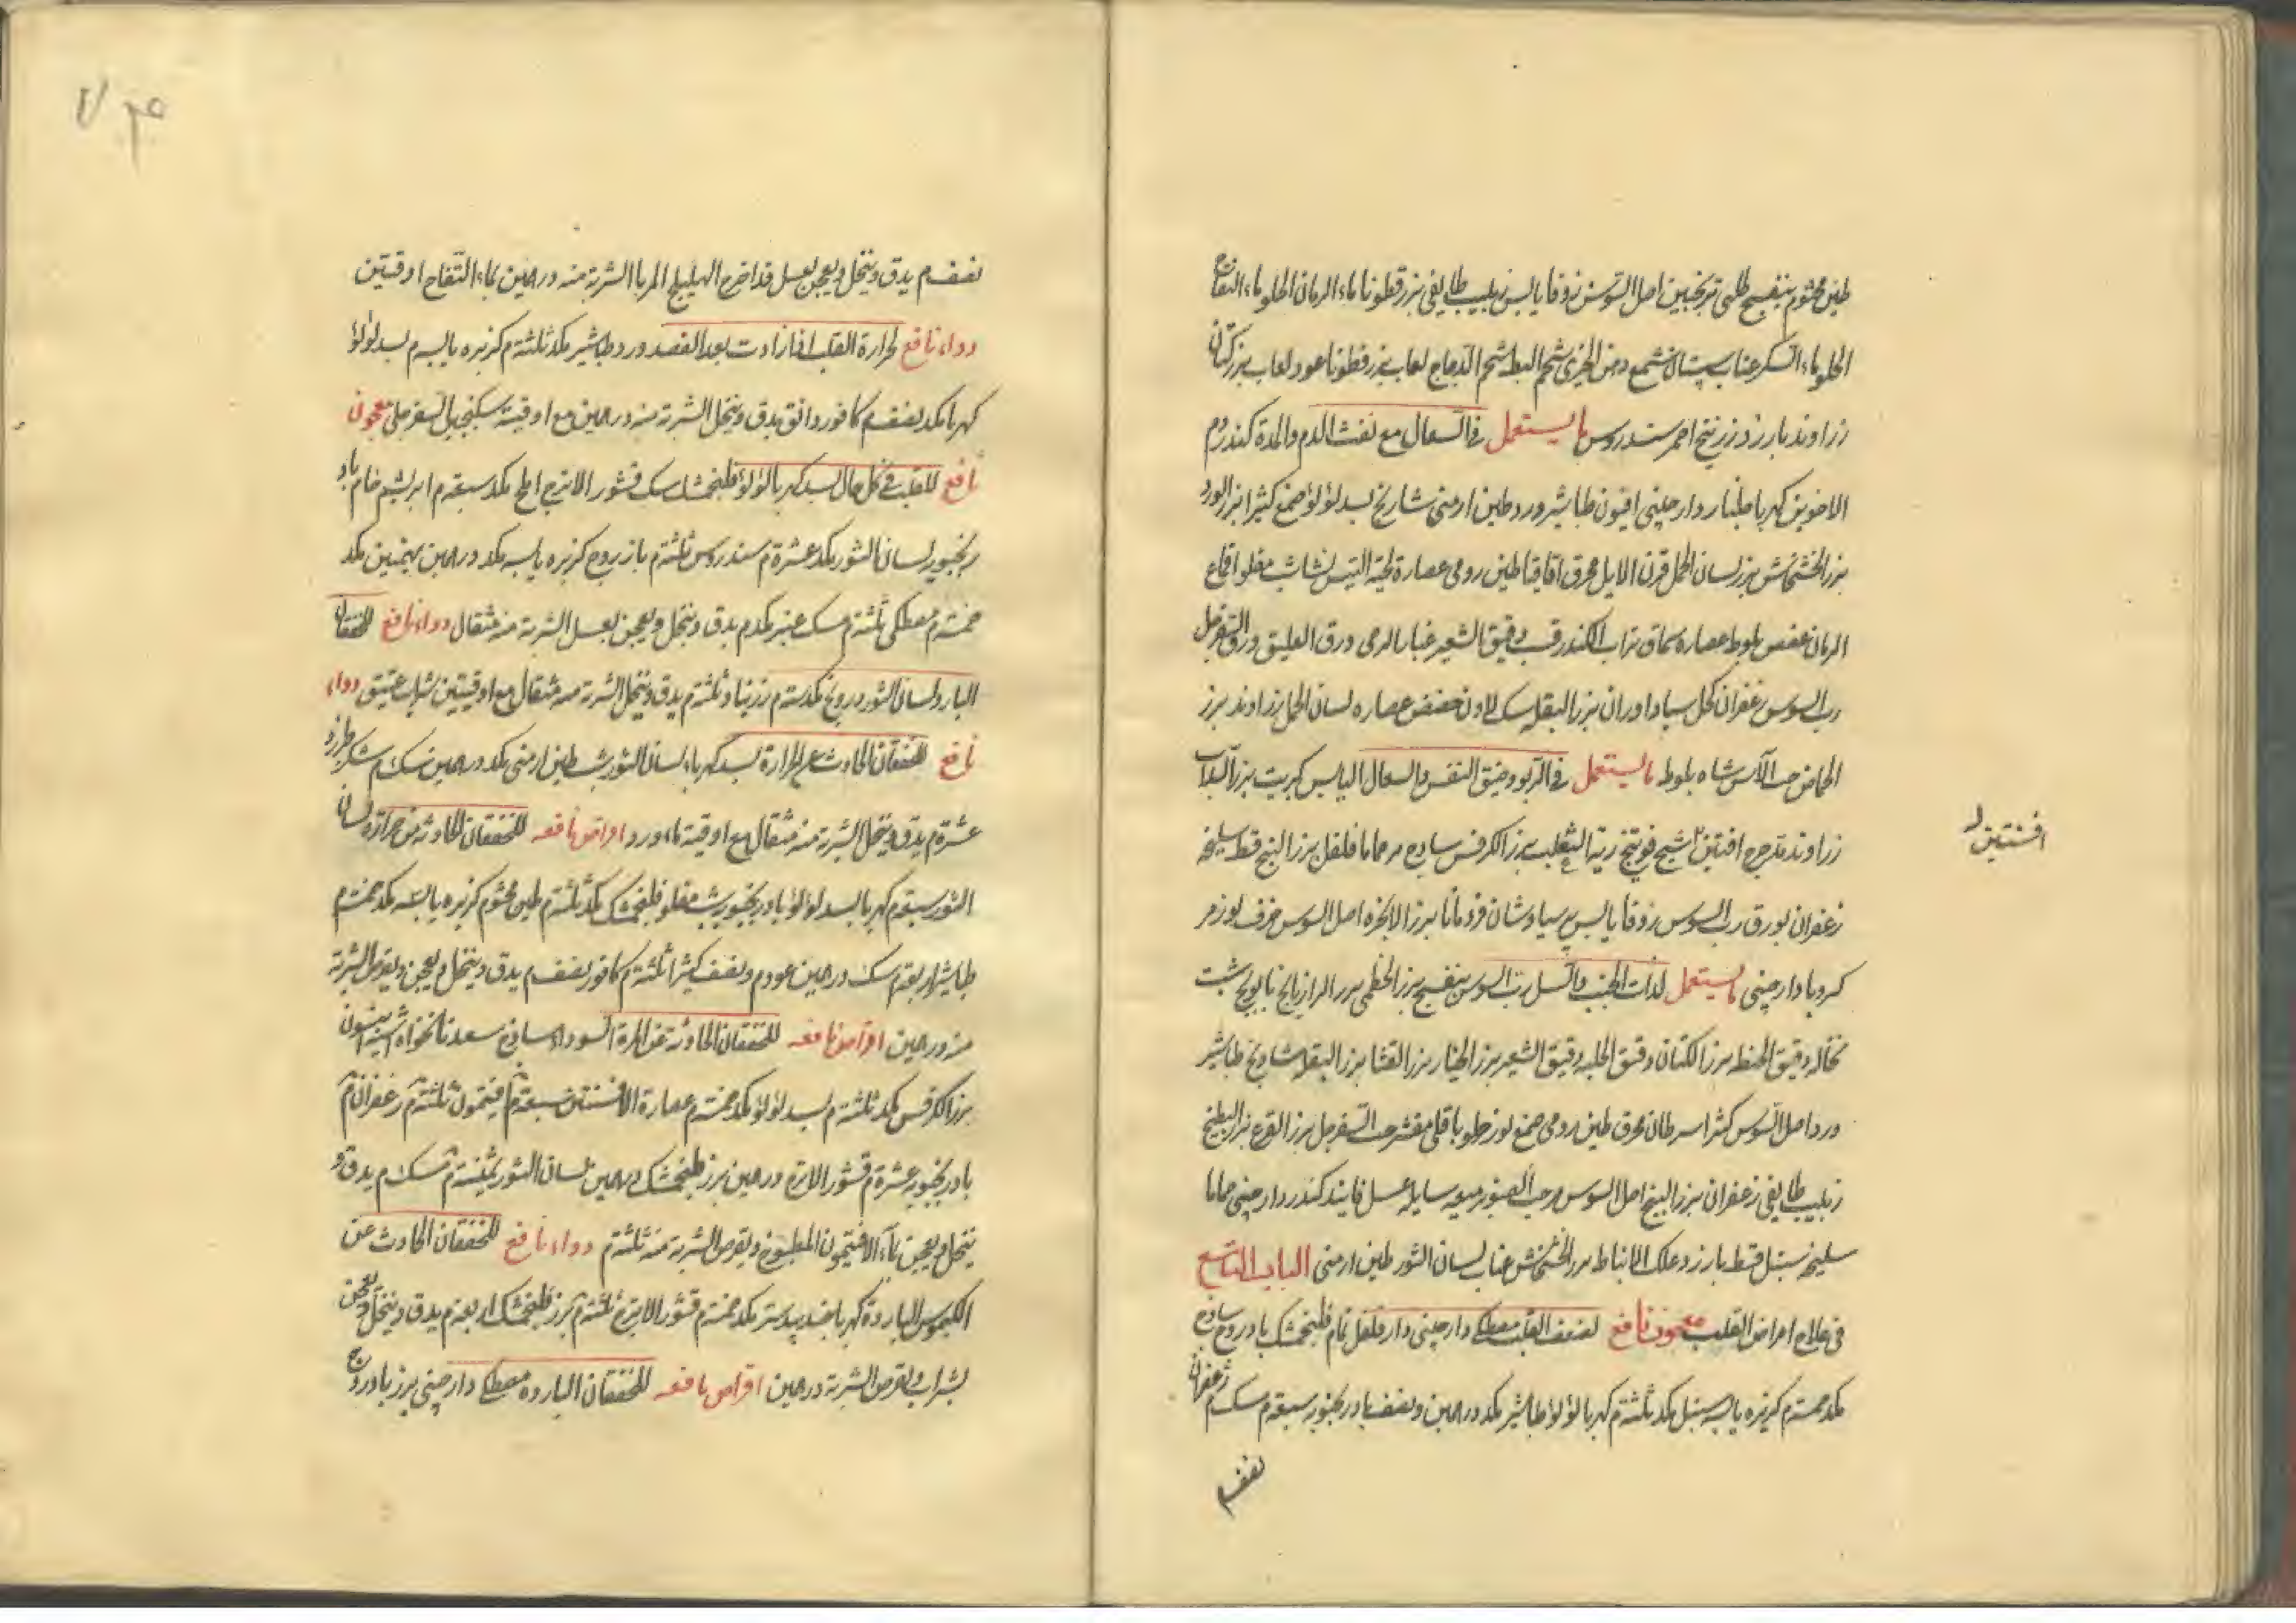 طين مختوم بنفسج طلى ترنجبين اصل السوس زوفا يابس زبيب طايفى بزرقطونا ماء الرمان الحلو ماء التفاح
الحلو ماء السكر عناب سپستان شمع دهن الخيرى شحم البط شحم الدجاج لعاب بزرقطونا عود لعاب بزر كتان
زراوند بارزد زرنيخ احمر سندروس ما يستعمل فى السعال مع نفث الدم والمدة كندر دم
الاخوين كهربا جلنار دارچينى افيون طباشير ورد طين ارمنى شاذنج بسد لؤلؤ صمغ كثيرا بزر الورد
بزر الخشخاش بزر لسان الحمل قرن الايل محرق اقاقيا طين رومى عصارة لحية التيس نشاسته مقلو اقماع
الرمان عفص بلوط عصاره سماق تراب الكندر قسب دقيق الشعير غبار الرحى ورق العليق ورق السفرجل
رب السوس زعفران كحل سياداوران بزر البقله سك لادن حضض عصاره لسان الحمل زراوند بزر
الحماض حب الآس شاه بلوط ما يستعمل فى الربو وضيق النفس والسعال اليابس كبريت بزر السداب
زراوند مدحرج افتتين شيح فوتنج رية الثعلب بزر الكرفس ساذج مر حماما فلفل بزر البنج قسط سليخه
افسنتين
زعفران بورق رب السوس زوفا يابس پرسياوشان قردمانا بزر الانجره اصل السوس حرف لوز مر
كرويا دارچينى ما يستعمل لذات الجنب والسل رب السوس بنفسج بزر الخطمى بزر الرازيانج بابونج شبت
نخاله دقيق الحنطه بزر الكتان دقيق الحلبه دقيق الشعير بزر الخيار بزر القثا بزر البقله شاذنج طباشير
ورد اصل السوس كثيرا سرطان محرق طين رومى صمغ لوز حلو باقلى مقشر حب السفرجل بزر القرع بزر البطيخ
زبيب طايفى زعفران بزر البنج اصل السوس مر حب الصنوبر ميعه سايله عسل فانيد كندر دارچينى حماما
سليخه سنبل قسط بارزد علك الانباط بزر الخشخاش عناب لسان الثور طين ارمنى الباب التاسع
فى علاج امراض القلب معجون نافع لضعف القلب مصطكى دارچينى دارفلفل نمام فلنجمشك بادروج ساذج
مكد خمسة م كزبره يابسه سنبل مكد ثلثة م كهربا لؤلؤ طباشير مكد درهمين ونصف بادرنجبويه سبعة م سك م زعفران
نصف
نصف م يدق وينخل ويعجن بعسل قد اخرج الهليلج المربا الشربة منه درهمين بماء التفاح اوقيتين
دواء نافع لحرارة القلب اذا زادت بعد الفصد ورد طباشير مكد ثلثة م كزبره يابسه م بسد لؤلؤ
كهربا مكد نصف م كافور دانق يدق وينخل الشربة منه درهمين مع اوقية سكنجبين السفرجلى معجون
نافع للقلب فى كل حال بسد كهربا لؤلؤ فلنجمشك سك قشور الاترج املج مكد سبعة م ابريشم خام باد
رنجبويه لسان الثور مكد عشرة م سندروس ثلثة م بازروج كزبره يابسه مكد درهمين بهمنين مكد
خمسة م مصطكى ثلثة م مسك عنبر مكد م يدق وينخل ويعجن بعسل الشربة منه مثقال دواء نافع للخفقان
البارد لسان الثور درونج مكد ستة م زرنباد ثلثة م يدق وينخل الشربة منه مثقال مع اوقيتين شراب عتيق دواء
نافع للخفقان الحادث عن الحرارة بسد كهرباء لسان الثور يشب طين ارمنى مكد درهمين مسك م سكر طبرزد
عشرة م يدق وينخل الشربة منه مثقال مع اوقية ماء ورد اقراص نافعه للخفقان الحادثه من حرارة لسان
الثور سبعة م كهربا بسد لؤلؤ بادرنجبويه يشب مقلو فلنجمشك مكد ثلثة م طين مختوم كزبره يابسه مكد خمسة م
طباشير اربعة م سك درهمين عود م ونصف كثيرا ثلثة م كافور نصف م يدق وينخل ويعجن ويقرص الشربة
منه درهمين اقراص نافعه للخفقان الحادثة عن المرة السوداء ساذج سعد نانخواه انيسون
بزر الكرفس مكد ثلثة م بسد لؤلؤ مكد خمسة م عصارة الافسنتين سبعة م افيثمون ثلثة م زعفران م
بادرنجبويه عشرة م قشور الاترج درهمين بزر فلنجمشك درهمين لسان الثور ثمنية م مسك م يدق و
ينخل ويعجن بماء الافتيمون المطبوخ ويقرص الشربة منه ثلثة م دواء نافع للخفقان الحادث عن
الكيموس الباردة كهربا جندبيدستر مكد خمسة م قشور الاترج ثلثة م بزر فلنجمشك اربعة م يدق وينخل ويعجن
بشراب ويقرص الشربة درهمين اقراص نافعه للخفقان البارده مصطكى دارچينى بزر بادروج